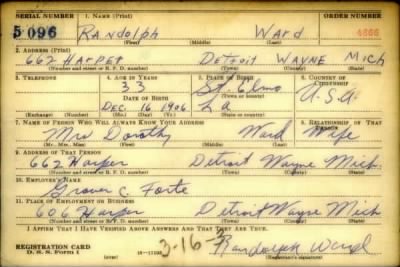 SERIAL NUMBER 1. NAME (Print) ORDER NUMBER
5096 RANDOLPH WARD
(First) (Middle) (Last)
2. ADDRESS (Print)
662 HARPER DETROIT WAYNE MICH
(Number and street or R. F. D. number) (Town) (County) (State)
3. TELEPHONE 4. AGE IN YEARS 5. PLACE OF BIRTH 6. COUNTRY OF CITIZENSHIP
33 St. Elmo
DATE OF BIRTH (Town or county)
DEC. 16 1906 La U.S.A.
(Exchange) (Number) (Mo.) (Day) (Yr.) (State or country)
7. NAME OF PERSON WHO WILL ALWAYS KNOW YOUR ADDRESS 8. RELATIONSHIP OF THAT PERSON
Mrs Dorothy Ward Wife
(Mr., Mrs., Miss) (First) (Middle) (Last)
9. ADDRESS OF THAT PERSON
662 Harper Detroit Wayne Mich
(Number and street or R. F. D. number) (Town) (County) (State)
10. EMPLOYER'S NAME
Grover C. Forte
11. PLACE OF EMPLOYMENT OR BUSINESS
606 Harper Detroit Wayne Mich
(Number and street or R. F. D. number) (Town) (County) (State)
I AFFIRM THAT I HAVE VERIFIED ABOVE ANSWERS AND THAT THEY ARE TRUE.
REGISTRATION CARD
D. S. S. Form 1 3-16-3 Randolph Ward